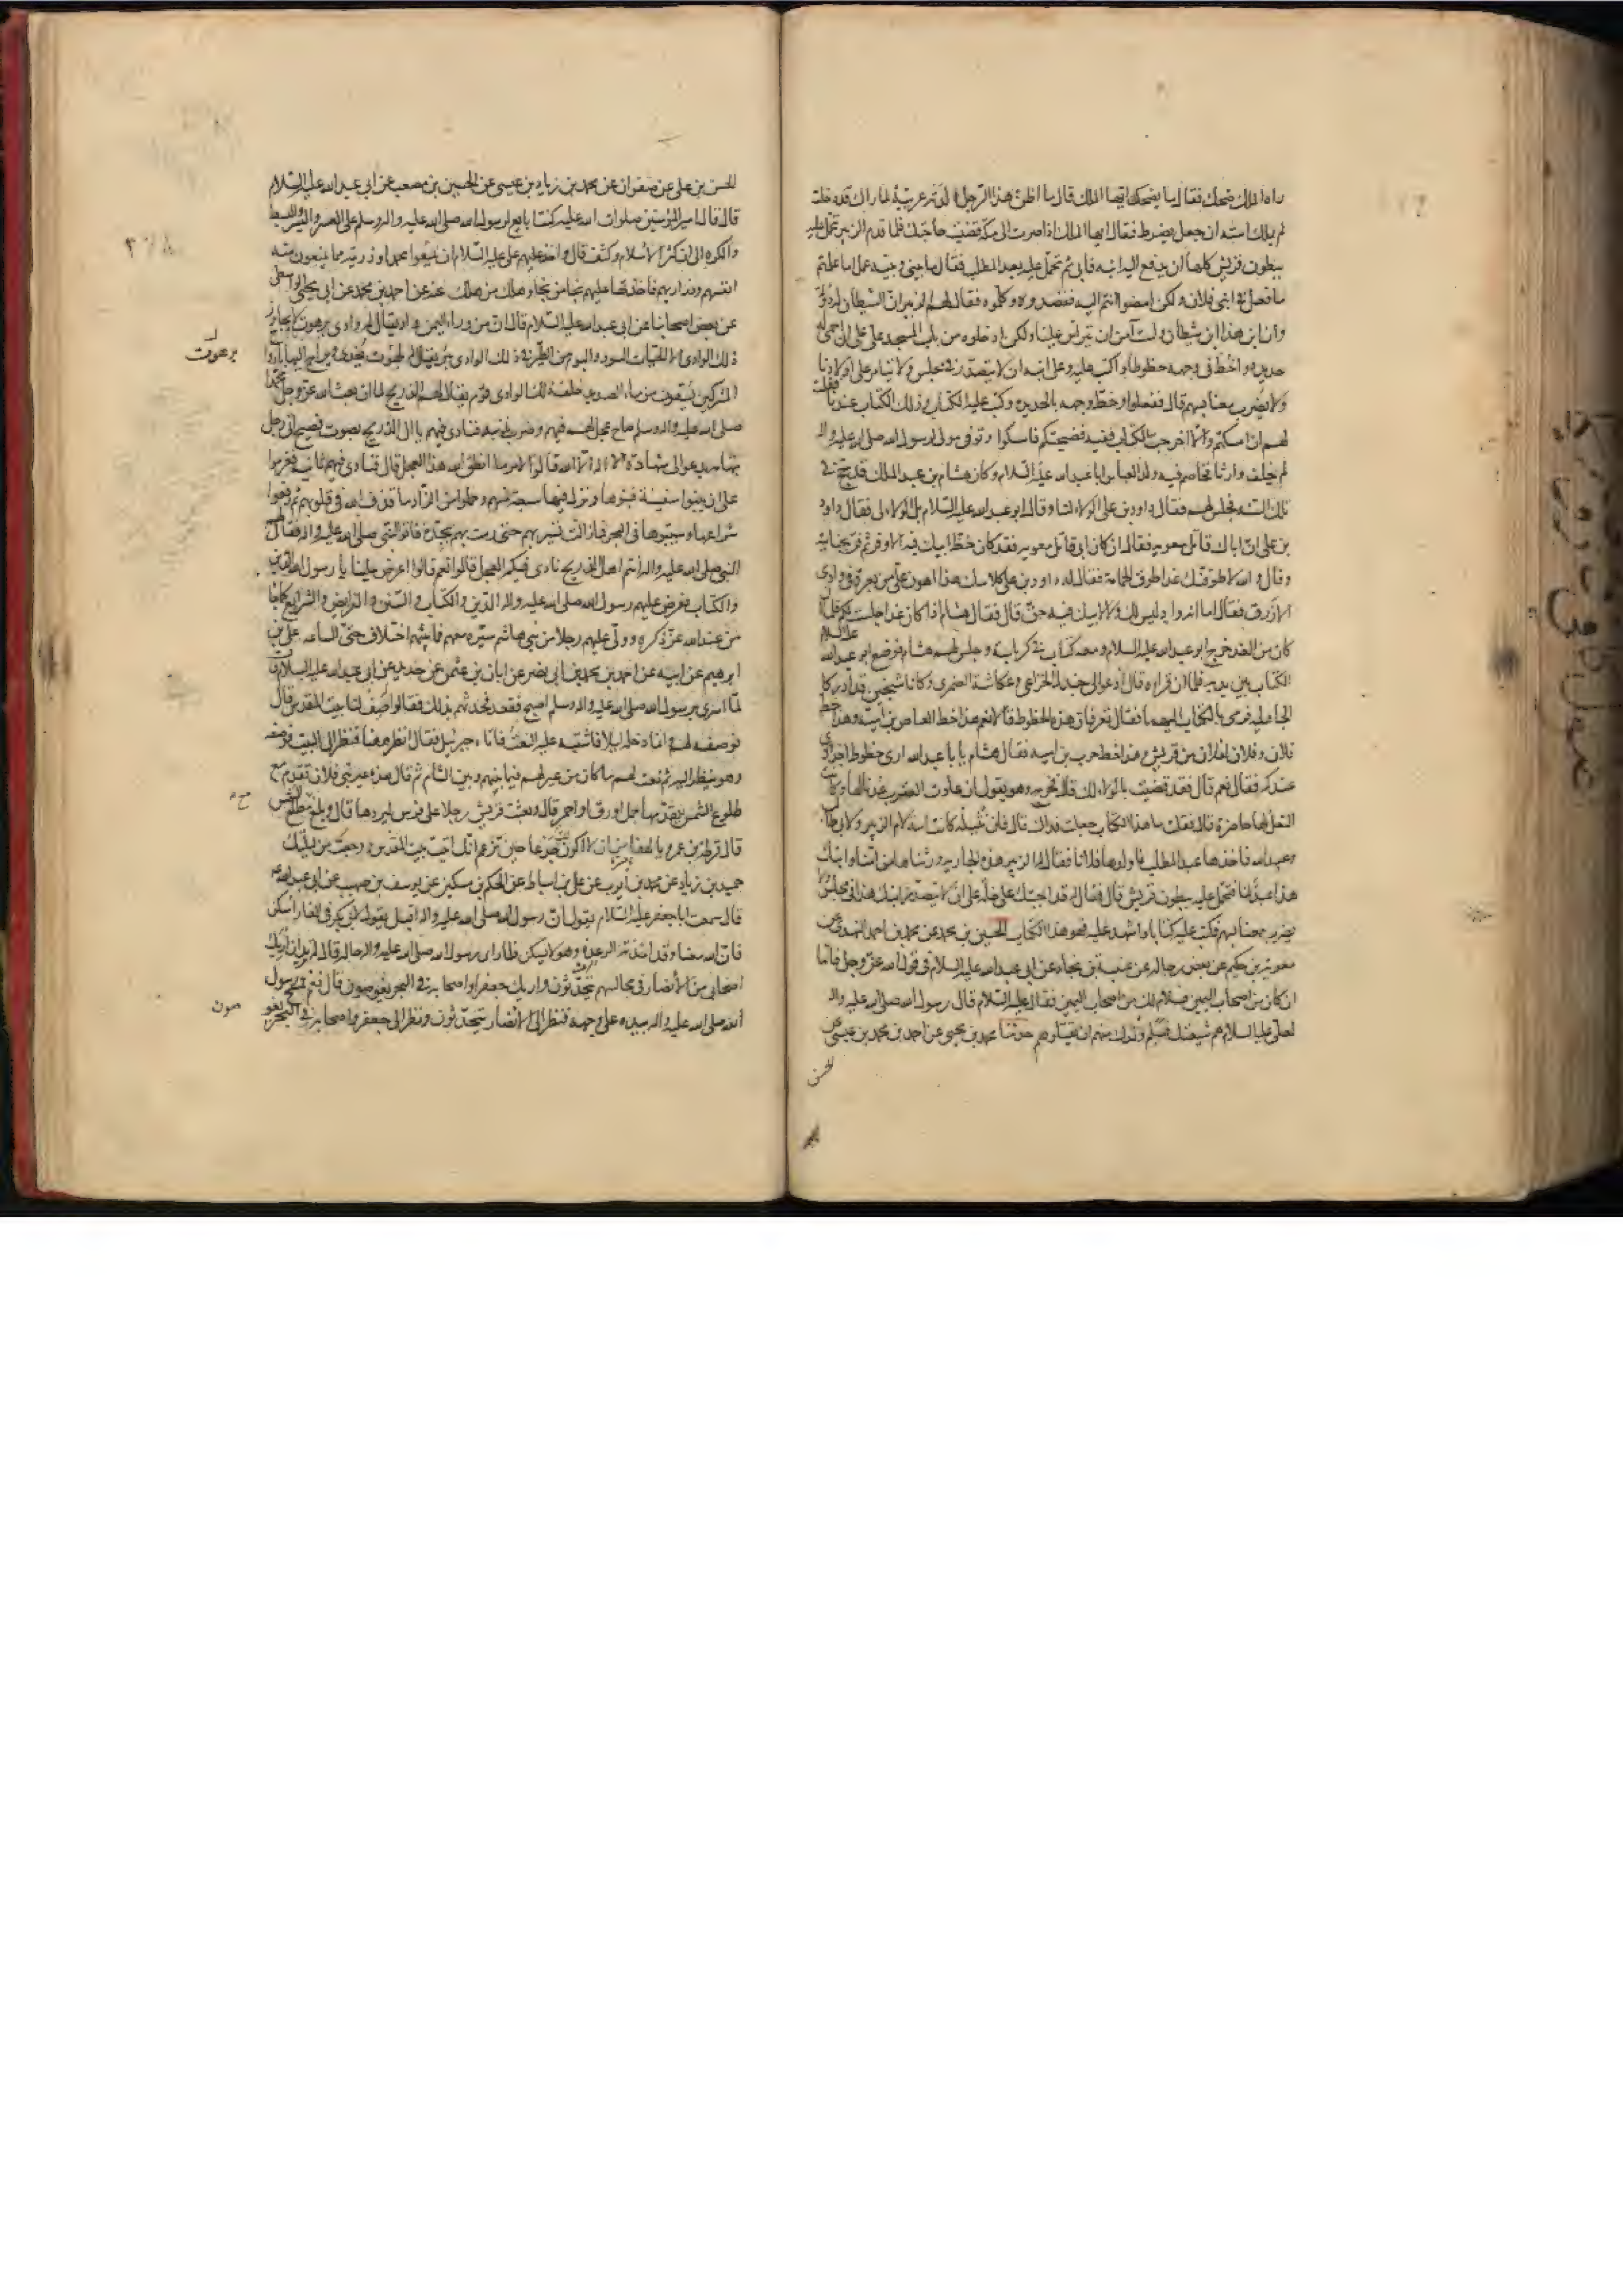 راه الملك ضحك فقال ما يضحكك ايها الملك قال ما اظن هذا الرجل ولدته عربية لما راك قد دخلت
لم يملك استه ان جعل يضرط فقال ايها الملك اذا صرت الى مكة قضيت حاجتك فلما قدم الزبير تحمل عليه
ببطون قريش كلها ان يدفع اليه ابنه فابى ثم تحمل عليه بعبد المطلب فقال ما بيني وبينه عمل اما علمتم
ما فعل في ابني فلان ولكن امضوا انتم اليه فقصدوه وكلموه فقال لهم الزبير ان الشيطان له دولة
وان ابن هذا ابن شيطان ولست آمن ان يتراس علينا ولكن ادخلوه من باب المسجد علي على ان احمي له
حديدة واخط في وجهه خطوطا واكتب عليه وعلى ابنه ان لا يتصدر في مجلس ولا يتامر على اولادنا
ولا يضرب معنا بسهم قال ففعلوا وخط وجهه بالحديدة وكتب عليه الكتاب وذلك الكتاب عندنا فقلت
لهم ان امسكتم والا اخرجت الكتاب ففيه فضيحتكم فامسكوا وتوفي مولى لرسول الله صلى الله عليه واله
لم يخلف وارثا فخاصم فيه ولد العباس ابا عبد الله عليه السلام وكان هشام بن عبد الملك قد حج في
تلك السنة فجلس لهم فقال داود بن علي الولاء لنا وقال ابو عبد الله عليه السلام بل الولاء لي فقال داود
بن علي ان اباك قاتل معوية فقال ان كان ابي قاتل معوية فقد كان حظ ابيك فيه الاوفر ثم فر بجنايته
وقال والله لاطوقنك غدا طوق الحمامة فقال له داود بن علي كلامك هذا اهون علي من بعرة في وادي
الازرق فقال اما انه واد ليس لك ولا لابيك فيه حق قال فقال هشام اذا كان غدا جلست لكم فلما
كان من الغد خرج ابو عبد الله عليه السلام ومعه كتاب في كرباسة وجلس لهم هشام فوضع ابو عبد الله عليه السلام
الكتاب بين يديه فلما ان قراه قال ادعوا لي جندل الخزاعي وعكاشة الضمري وكانا شيخين قد ادركا
الجاهلية فرمى بالكتاب اليهما فقال تعرفان هذه الخطوط قالا نعم هذا خط العاص بن امية وهذا خط
فلان وفلان لفلان من قريش وهذا خط حرب بن امية فقال هشام يا با عبد الله ارى خطوط اجدادي
عندكم فقال نعم قال فقد قضيت بالولاء لك قال فخرج وهو يقول ان عادت العقرب عدنا لها وكانت
النعل لها حاضرة قال فقلت ما هذا الكتاب جعلت فداك قال فان نثيلة كانت امة لام الزبير ولابي طالب
وعبد الله فاخذها عبد المطلب فاولدها فلانا فقال له الزبير هذه الجارية ورثناها من امنا وابنك
هذا عبد لنا فتحمل عليه ببطون قريش قال فقال قد اجبتك على خلة على ان لا يتصدر ابنك هذا في مجلس ولا
يضرب معنا بسهم فكتب عليه كتابا واشهد عليه فهو هذا الكتاب الحسين بن محمد عن محمد بن احمد النهدي عن
معوية بن حكيم عن بعض رجاله عن عنبسة بن بجاد عن ابي عبد الله عليه السلام في قول الله عز وجل فاما
ان كان من اصحاب اليمين فسلام لك من اصحاب اليمين فقال عليه السلام قال رسول الله صلى الله عليه واله
لعلي عليه السلام هم شيعتك فسلم ولدك منهم ان يقتلوهم حدثنا محمد بن يحيى عن احمد بن محمد بن عيسى عن
الحسن
الحسن بن علي عن صفوان عن محمد بن زياد بن عيسى عن الحسين بن مصعب عن ابي عبد الله عليه السلام
قال قال امير المؤمنين صلوات الله عليه كنت ابايع لرسول الله صلى الله عليه واله وسلم على العسر واليسر والبسط
والكره الى ان كثر الاسلام وكثف قال واخذ عليهم علي عليه السلام ان يمنعوا محمدا وذريته مما يمنعون منه
انفسهم وذراريهم فاخذتها عليهم نجا من نجا وهلك من هلك عنه عن احمد بن محمد عن ابي يحيى الواسطي
عن بعض اصحابنا عن ابي عبد الله عليه السلام قال ان من وراء اليمن واديا يقال له وادي برهوت ولا يجاوز
ذلك الوادي الا الحيات السود والبوم من الطير في ذلك الوادي بئر يقال لها بلهوت يغدى ويراح اليها بارواح
برهوت
المشركين يسقون من ماء الصديد خلف ذلك الوادي قوم يقال لهم الذريح لما ان بعث الله عز وجل محمدا
صلى الله عليه واله وسلم صاح عجل لهم فيهم وضرب بذنبه فنادى فيهم يا ال الذريح بصوت فصيح اتى رجل
بتهامة يدعو الى شهادة ان لا اله الا الله قالوا لامر ما انطق الله هذا العجل قال فنادى فيهم ثانية فعزموا
على ان يبنوا سفينة فبنوها ونزل فيها سبعة منهم وحملوا من الزاد ما قذف الله في قلوبهم ثم رفعوا
شراعها وسيبوها في البحر فما زالت تسير بهم حتى رمت بهم بجدة فاتوا النبي صلى الله عليه واله فقال لهم
النبي صلى الله عليه واله انتم اهل الذريح نادى فيكم العجل قالوا نعم قالوا اعرض علينا يا رسول الله الدين
والكتاب فعرض عليهم رسول الله صلى الله عليه واله الدين والكتاب والسنن والفرايض والشرايع كما جاء
من عند الله عز ذكره وولى عليهم رجلا من بني هاشم سيره معهم فما بينهم اختلاف حتى الساعة علي بن
ابرهيم عن ابيه عن احمد بن محمد بن ابي نصر عن ابان بن عثمن عن حديد عن ابي عبد الله عليه السلام قال
لما اسري برسول الله صلى الله عليه واله وسلم اصبح فقعد فحدثهم بذلك فقالوا صف لنا بيت المقدس قال
فوصف لهم وانما دخله ليلا فاشتبه عليه النعت فاتاه جبرئيل فقال انظر ههنا فنظر الى البيت فوصفه
وهو ينظر اليه ثم نعت لهم ما كان من عير لهم فيما بينهم وبين الشام ثم قال هذه عير بني فلان تقدم مع
طلوع الشمس يتقدمها جمل اورق او احمر قال وبعثت قريش رجلا على فرس ليردها قال وبلغ مع طلوع الشمس
قال قرطة بن عبد عمرو يا لهفا ان لا اكون لك جذعا حين تزعم انك اتيت بيت المقدس ورجعت من ليلتك
حميد بن زياد عن محمد بن ايوب عن علي بن اسباط عن الحكم بن مسكين عن يوسف بن صهيب عن ابي عبد الله ع
قال سمعت ابا جعفر عليه السلام يقول ان رسول الله صلى الله عليه واله اقبل يقول لابي بكر في الغار اسكن
فان الله معنا وقد اخذته الرعدة وهو لا يسكن فلما راى رسول الله صلى الله عليه واله حاله قال له تريد ان اريك
اصحابي من الانصار في مجالسهم يتحدثون واريك جعفرا واصحابه في البحر يغوصون قال نعم فمسح رسول
الله صلى الله عليه واله بيده على وجهه فنظر الى الانصار يتحدثون ونظر الى جعفر واصحابه في البحر يغو
صون